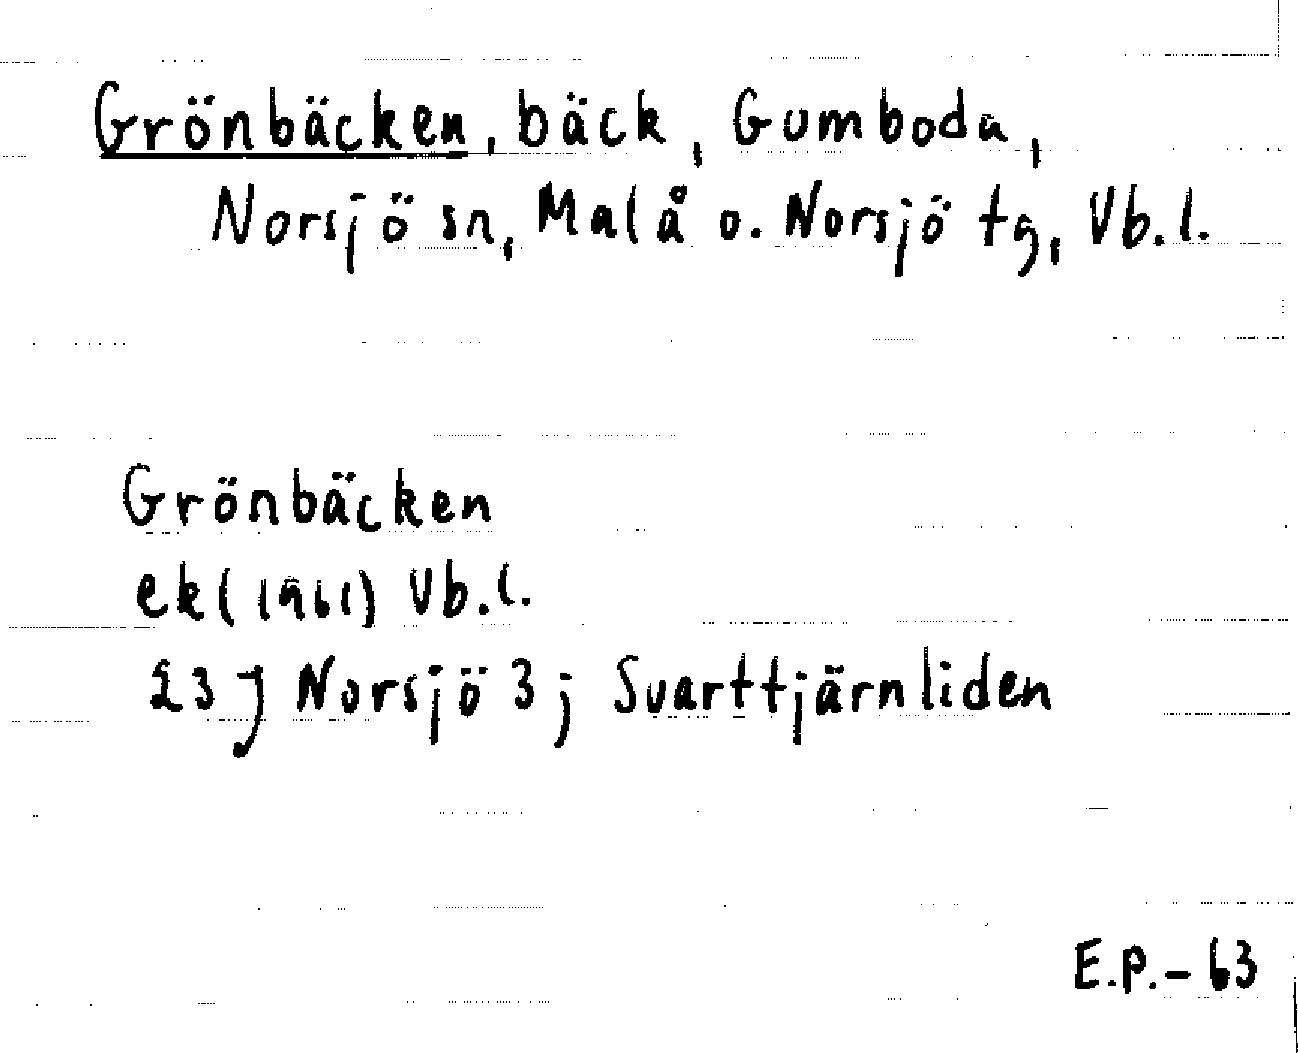 Grönbäcken, bäck, Gumboda,
Norsjö sn, Malå o. Norsjö tg, Vb.l.
Grönbäcken
ek (1961) Vb.l.
23 J Norsjö 3 j Svarttjärnliden
E.P.-63